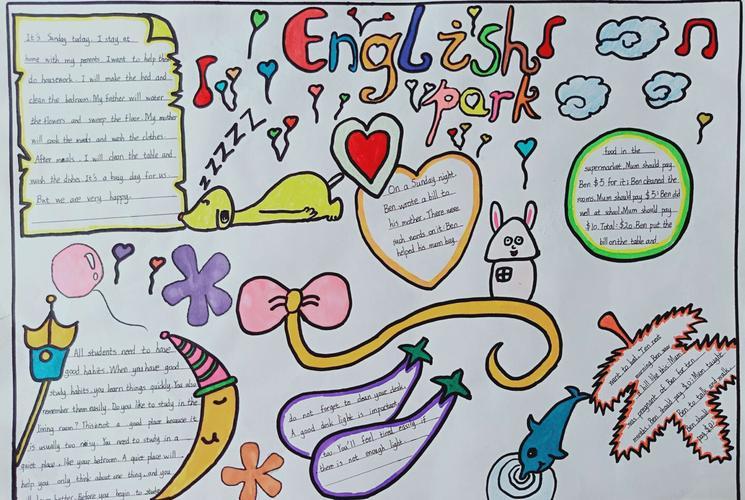 English
park
It's Sunday today. I stay at
home with my parents. I want to help them
do housework. I will make the bed and
clean the bedroom. My father will water
the flowers and sweep the floor. My mother
will cook the meals and wash the clothes.
After meals, I will clean the table and
wash the dishes. It's a busy day for us.
But we are very happy.
ZZZZZ
On a Sunday night
Ben wrote a bill to
his mother. There were
such words on it: Ben
helped his mum buy
food in the
supermarket, Mum should pay
Ben $5 for it; Ben cleaned the
room, Mum should pay $5; Ben did
well at school, Mum should pay
$10. Total: $20. Ben put the
bill on the table and
went to bed. Ten
morning Ben saw
a bill like this: Mum
was pregnant of Ben for ten
months, Ben should pay $0; Mum taught
Ben to talk and walk,
Ben should
pay $0;
All students need to have
good habits. When you have good
study habits, you learn things quickly. You also
remember them easily. Do you like to study in the
living room? This is not a good place because it
is usually too noisy. You need to study in a
quiet place, like your bedroom. A quiet place will
help you only think about one thing, and you
better. Before you begin to study
do not forget to clean your desk.
A good desk light is important
too. You'll feel tired easily if
there is not enough light.